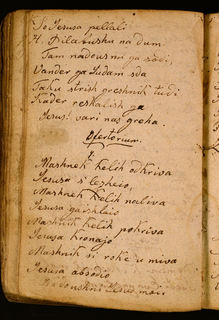 To Jesusa pellali
H' Pilatushu na dum
Tam nadousnu ga sodi,
Vander ga Judam sda
Taku strish greshnik tudi
Kader reskalish ga
Jesus! vari nas greha.
Ofertorium.
1.
Mashnek Kelih odkriva
Jesusa s' lezheio,
Mashnek Kelih naliva
Jesusa gaishlaio
Mashnik Kelih pokriva
Jesusa kronajo
Mashnik si roke u miva
Jesusa absodio